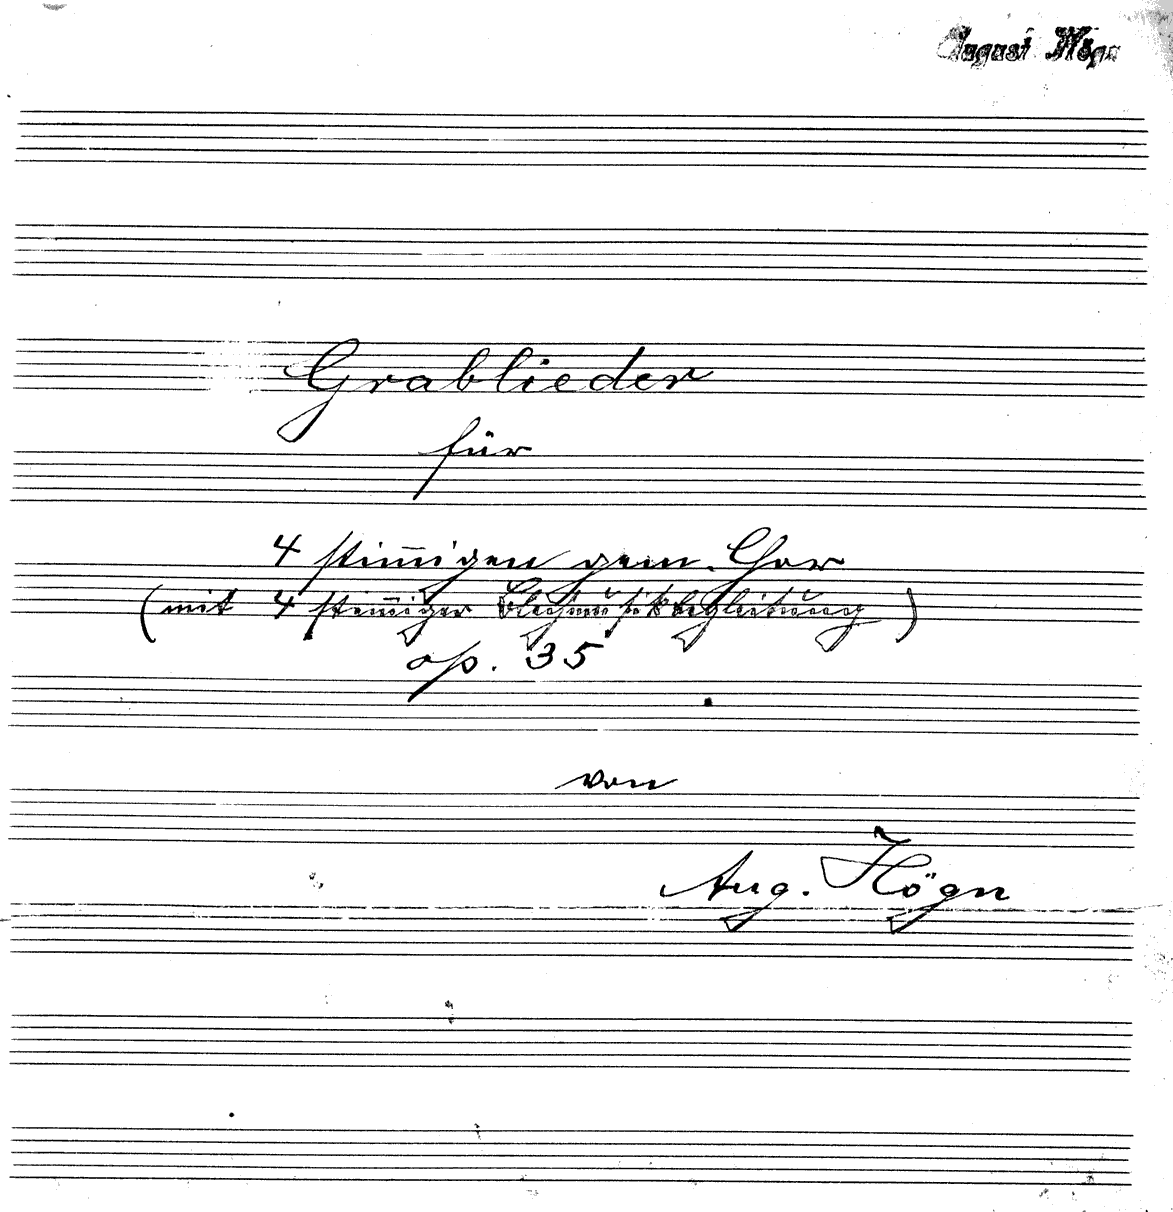 August Högn
Grablieder
für
4 stim̅igen gem. Chor
(mit 4 stim̅iger Blechmusikbegleitung)
op. 35
von
Aug. Högn